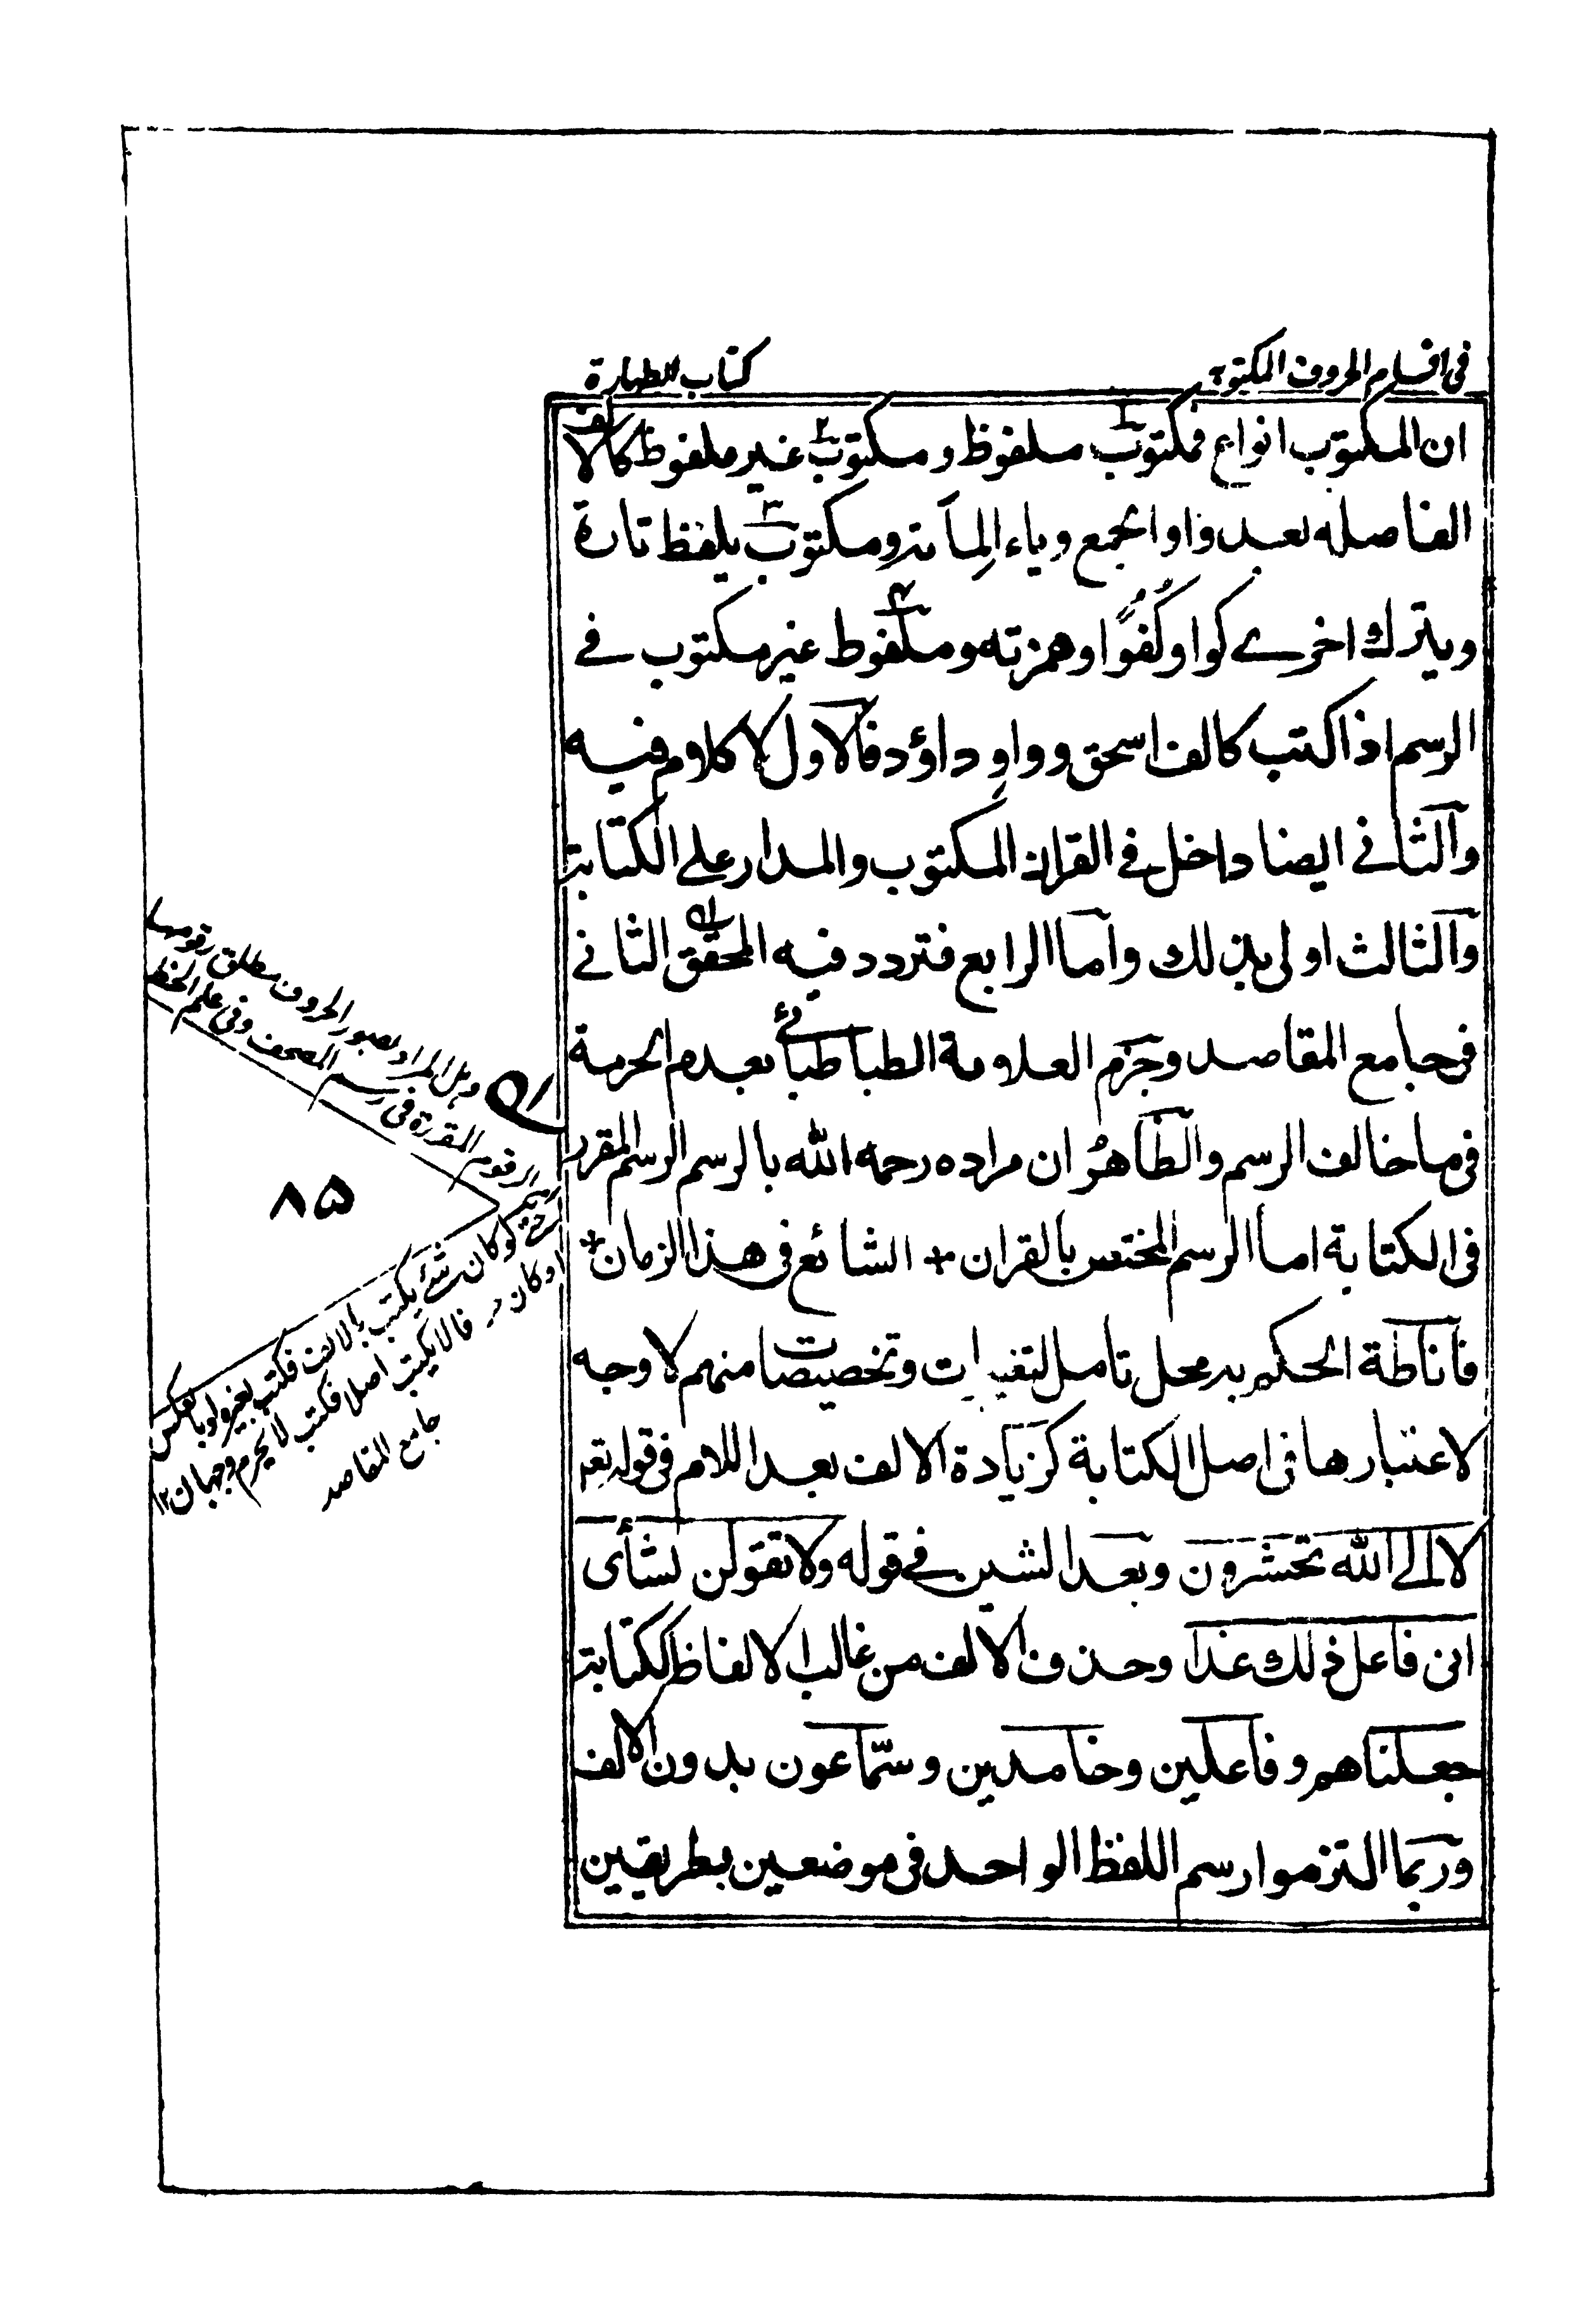 في اقسام الحروف المكتوبة
كتاب الطهارة
ان المكتوب انواع فمكتوب ملفوظ و مكتوب غير ملفوظ كالالف
الفاصله بعد واو الجمع وياء المأية ومكتوب يلفظ تارة
ويترك اخرے كواو كُفُوًا وهمزته وملفوظ غير مكتوب في
الرسم اذا كتب كالف اسحق وواو داؤد فالاول لا كلام فيه
والثاني ايضا داخل في القران المكتوب والمدار علي الكتابة
والثالث اولى بذلك واما الرابع فتردد فيه المحقق الثاني
في جامع المقاصد وجزم العلامة الطباطبائے بعدم الحرمة
في ما خالف الرسم والظاهر ان مراده رحمه الله بالرسم الرسم المقرر
في الكتابة اما الرسم المختص بالقران * الشائع في هذا الزمان *
فاناطة الحكم به محل تامل لتغييرات وتخصيصات منهم لا وجه
لاعتبارها في اصل الكتابة كزيادة الالف بعد اللام في قوله تعہ
لا الے الله تحشرون وبعد الشين في قوله ولا تقولن لشأى
انى فاعل ذلك غدا وحذف الالف من غالب الالفاظ ككتابة
جعلناهم وفاعلين وخامدين وسمّاعون بدون الالف
وربما التزموا رسم اللفظ الواحد في موضعين بطريقين
وهل المراد بصور الحروف مطلق رقومها
الرقوم المقررة في رسم المصحف وفي علم الخط
حتے لو كان شئے يكتب بالالف فكتب بغير واو بالعكس
او كان مما لا يكتب اصلا فكتب لا يحرم وجهان ١٢
جامع المقاصد
٨۵